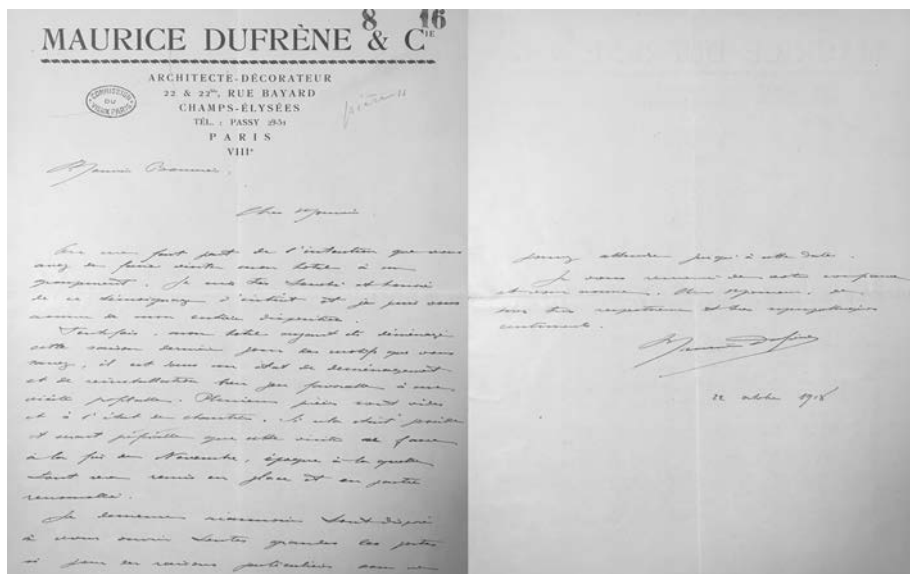 8 16
MAURICE DUFRÈNE & CIE
ARCHITECTE-DÉCORATEUR
22 & 22bis, RUE BAYARD
CHAMPS-ÉLYSÉES
TÉL. : PASSY 29-51
PARIS
VIIIe
COMMISSION
DU
VIEUX PARIS
Cher Monsieur
On me fait part de l'intention que vous
avez de faire visiter mon hôtel à un
groupement. Je suis très touché et honoré
de ce témoignage d'intérêt et je puis vous
assurer de mon entière disposition.
Toutefois, mon hôtel ayant été déménagé
cette saison dernière pour les motifs que vous
savez, il est dans un état de déménagement
et de réinstallation bien peu favorable à une
visite profitable. Plusieurs pièces sont vides
et à l'état de chantier. Si cela était possible
il serait préférable que cette visite se fasse
à la fin de Novembre, époque à laquelle
tout sera remis en place et en partie
renouvelé.
Je demeure néanmoins tout disposé
à vous ouvrir toutes grandes les portes
si pour des raisons particulières vous ne
pouvez attendre jusqu'à cette date.
Je vous remercie de
et vous
mes très respectueux et très sympathiques
sentiments.
Maurice Dufrène
22 octobre 1918